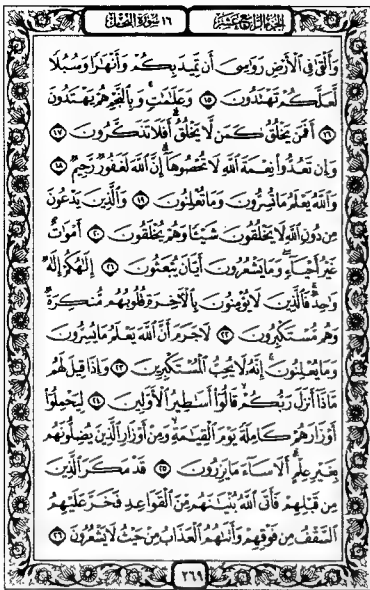 الجزء الرابع عشر ١٦ سورة النحل
وَأَلْقَىٰ فِي الْأَرْضِ رَوَاسِيَ أَن تَمِيدَ بِكُمْ وَأَنْهَارًا وَسُبُلًا
لَّعَلَّكُمْ تَهْتَدُونَ ١٥ وَعَلَامَاتٍ وَبِالنَّجْمِ هُمْ يَهْتَدُونَ
١٦ أَفَمَن يَخْلُقُ كَمَن لَّا يَخْلُقُ أَفَلَا تَذَكَّرُونَ ١٧
وَإِن تَعُدُّوا نِعْمَةَ اللَّهِ لَا تُحْصُوهَا إِنَّ اللَّهَ لَغَفُورٌ رَّحِيمٌ ١٨
وَاللَّهُ يَعْلَمُ مَا تُسِرُّونَ وَمَا تُعْلِنُونَ ١٩ وَالَّذِينَ يَدْعُونَ
مِن دُونِ اللَّهِ لَا يَخْلُقُونَ شَيْئًا وَهُمْ يُخْلَقُونَ ٢٠ أَمْوَاتٌ
غَيْرُ أَحْيَاءٍ وَمَا يَشْعُرُونَ أَيَّانَ يُبْعَثُونَ ٢١ إِلَٰهُكُمْ إِلَٰهٌ
وَاحِدٌ فَالَّذِينَ لَا يُؤْمِنُونَ بِالْآخِرَةِ قُلُوبُهُم مُّنكِرَةٌ
وَهُم مُّسْتَكْبِرُونَ ٢٢ لَا جَرَمَ أَنَّ اللَّهَ يَعْلَمُ مَا يُسِرُّونَ
وَمَا يُعْلِنُونَ إِنَّهُ لَا يُحِبُّ الْمُسْتَكْبِرِينَ ٢٣ وَإِذَا قِيلَ لَهُم
مَّاذَا أَنزَلَ رَبُّكُمْ قَالُوا أَسَاطِيرُ الْأَوَّلِينَ ٢٤ لِيَحْمِلُوا
أَوْزَارَهُمْ كَامِلَةً يَوْمَ الْقِيَامَةِ وَمِنْ أَوْزَارِ الَّذِينَ يُضِلُّونَهُم
بِغَيْرِ عِلْمٍ أَلَا سَاءَ مَا يَزِرُونَ ٢٥ قَدْ مَكَرَ الَّذِينَ
مِن قَبْلِهِمْ فَأَتَى اللَّهُ بُنْيَانَهُم مِّنَ الْقَوَاعِدِ فَخَرَّ عَلَيْهِمُ
السَّقْفُ مِن فَوْقِهِمْ وَأَتَاهُمُ الْعَذَابُ مِنْ حَيْثُ لَا يَشْعُرُونَ ٢٦
٢٦٩